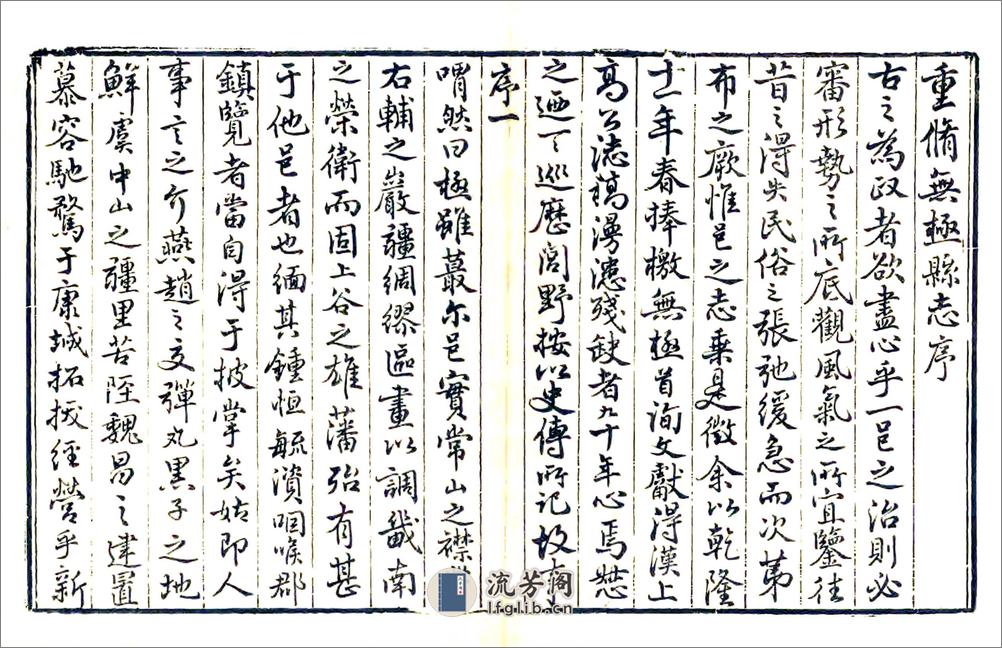 重脩無極縣志序
古之為政者欲盡心乎一邑之治則必
審形勢之所底觀風氣之所宜鑒往
昔之得失民俗之張弛緩急而次第
布之厥惟邑之志乘是徵余以乾隆
十一年春捧檄無極首詢文獻得漢上
高公誌稿漫漶殘缺者九十年心焉惄
之迺巡歷閭野按以史傳所記故
序一
喟然曰極雖蕞尔邑實常山之襟
右輔之巖疆綢繆區畫以調畿南
之榮衛而固上谷之雄藩殆有甚
于他邑者也緬其鍾恒毓瀆咽喉郡
鎮覽者當自得于披掌矣姑即人
事言之介燕趙之交彈丸黑子之地
鮮虞中山之疆里苦陘魏昌之建置
慕容馳騖于康城拓拔經營乎新
流芳阁
lfglib.cn